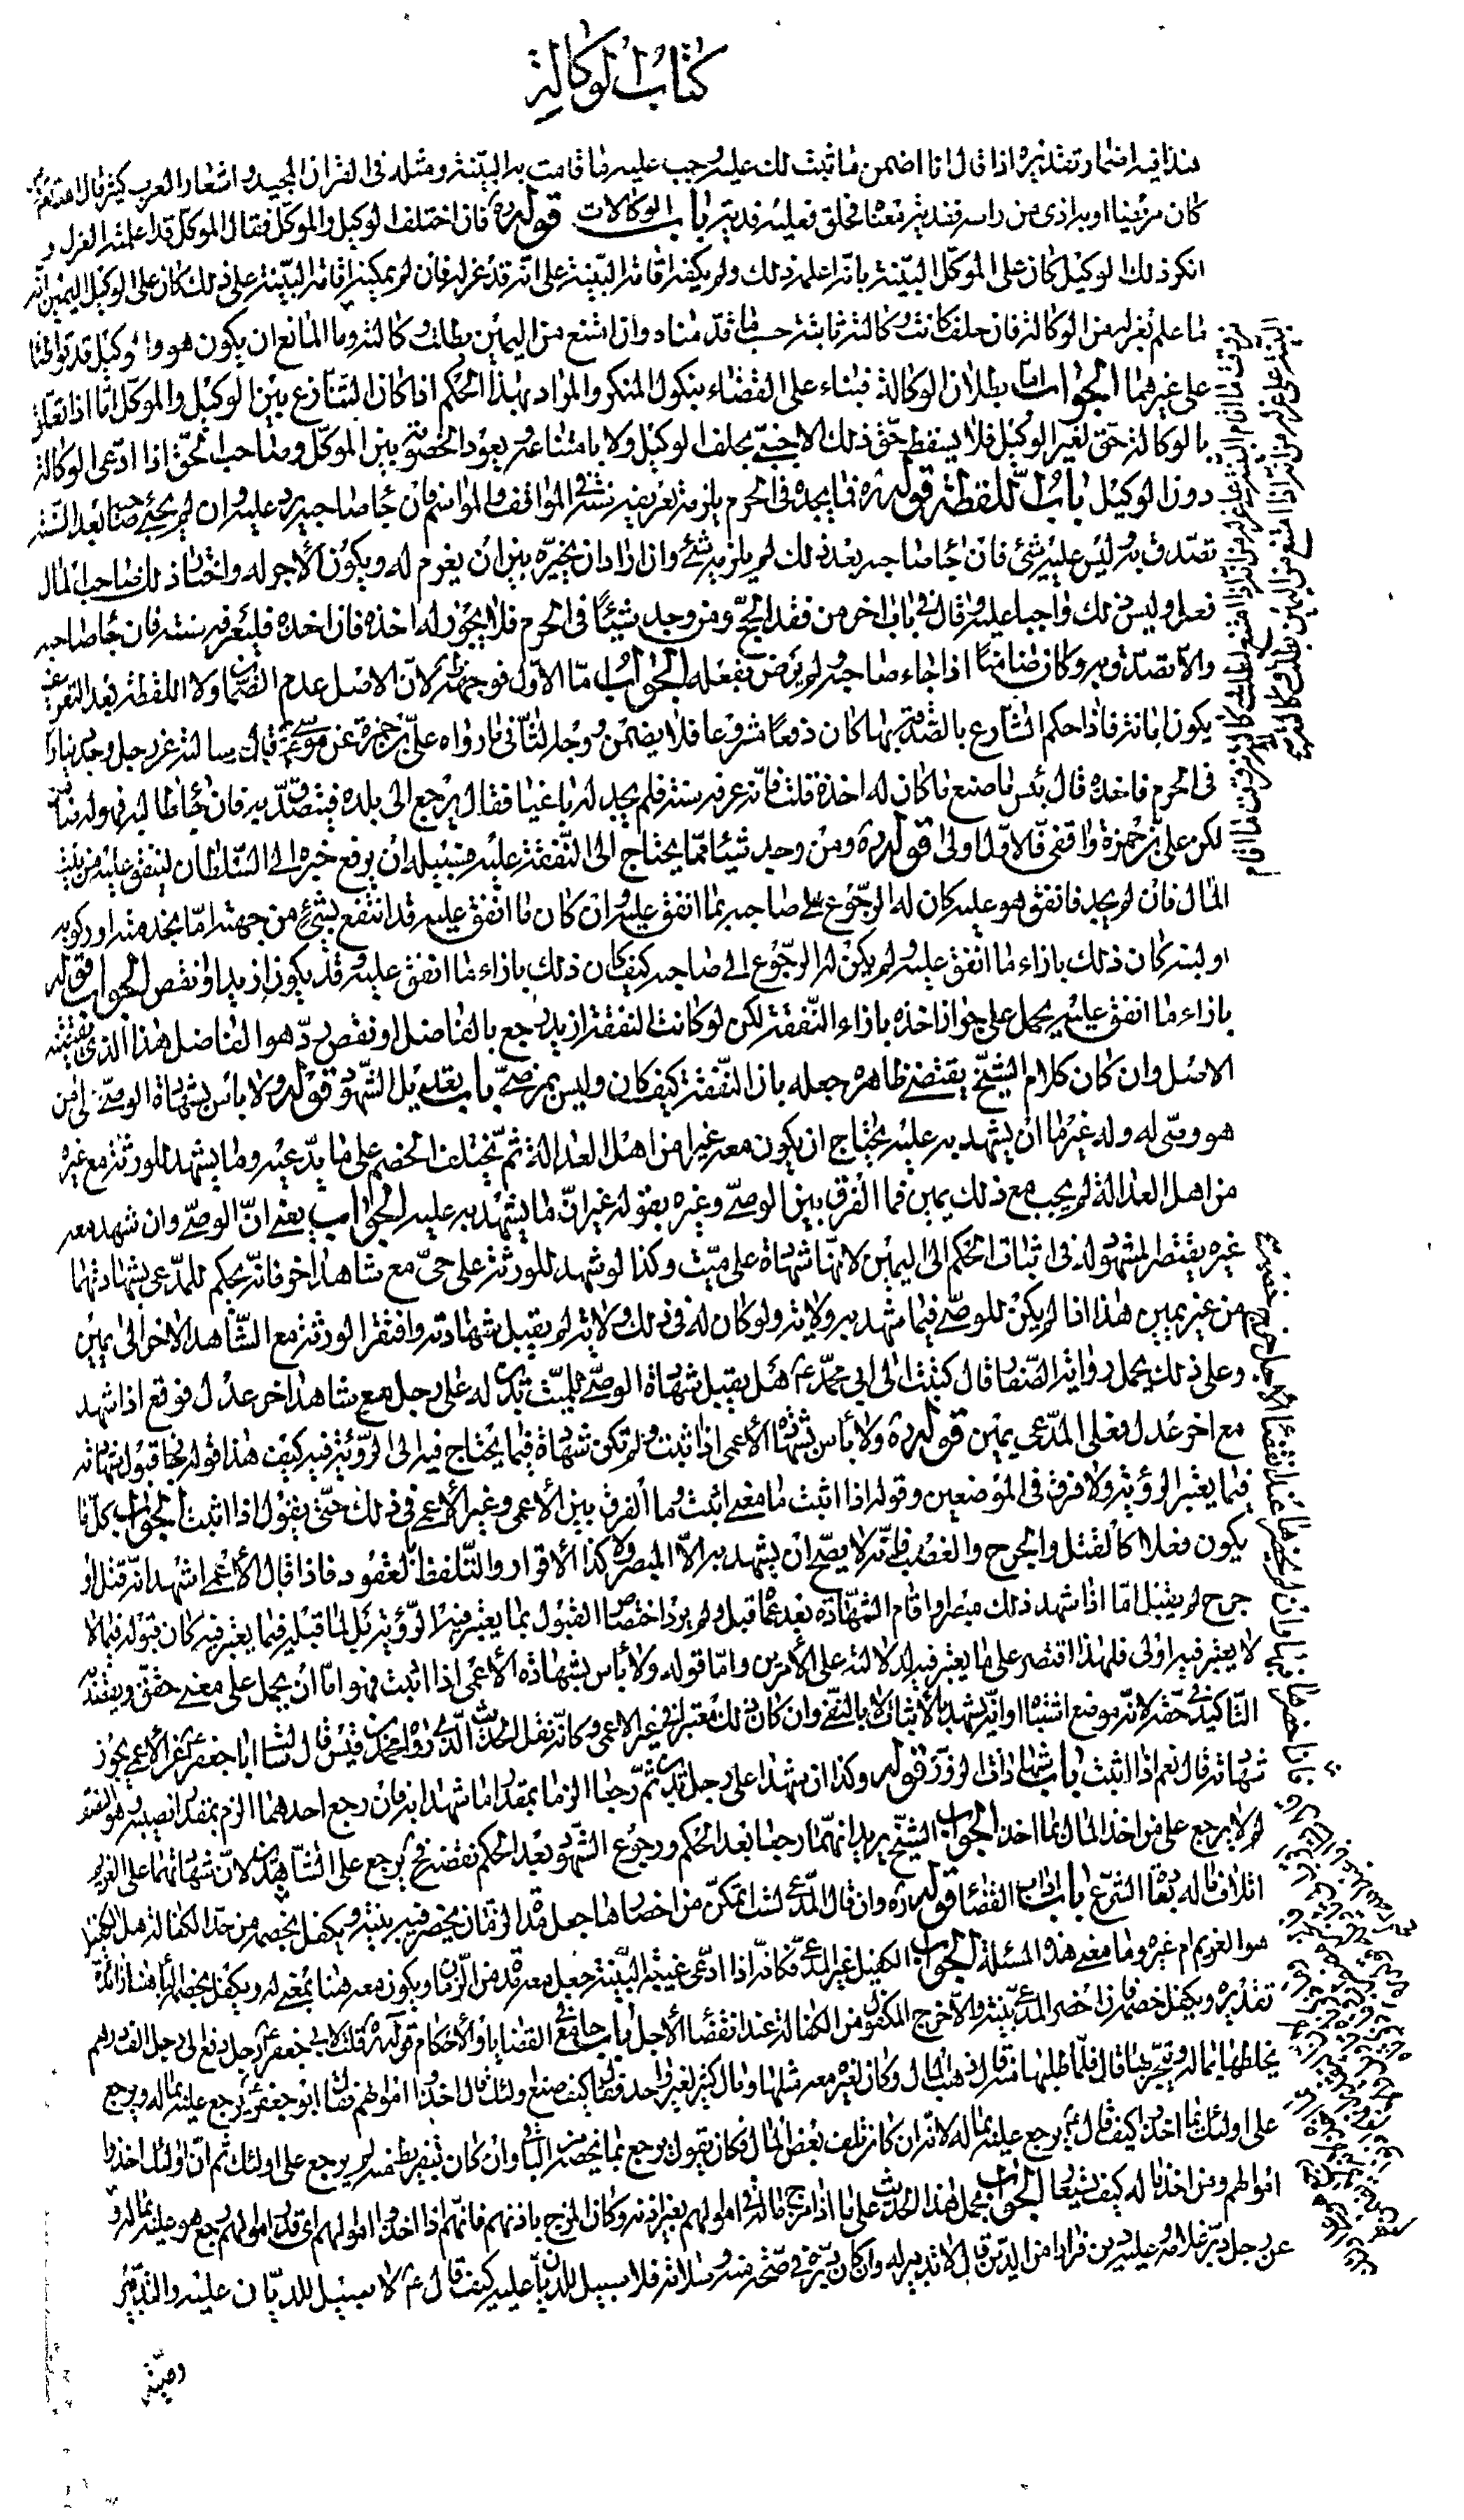 كتاب الوكالة
هذا فيه اضمار تقديره اذا قال انا اضمن ما ثبت لك عليه وجب عليه ما قامت به البينة ومثله فى القران المجيد واشعار العرب كثير قال الله تعالى فمن
كان مريضا او به اذى من راسه ففدية معناه فحلق فعليه فدية باب الوكالات قوله ره فان اختلف الوكيل والموكل فقال الموكل قد اعلمته العزل و
انكر ذلك الوكيل كان على الموكل البينة بانه اعلمه ذلك ولم يكفه اقامة البينة على انه قد عزله فان لم يمكنه اقامة البينة على ذلك كان على الوكيل اليمين انه
ما علم بعزله من الوكالة فان حلف كانت وكالته ثابتة حسب ما قدمناه وان امتنع من اليمين بطلت وكالته وما المانع ان يكون هو والوكيل قد تواطئا
على غيرهما الجواب اما بطلان الوكالة فبناء على القضاء بنكول المنكر والمراد بهذا الحكم اذا كان التنازع بين الوكيل والموكل اما اذا تعلق
بالوكالة حق لغير الوكيل فلا يسقط حق ذلك الاجنبى بحلف الوكيل ولا بامتناعه ويعود الخصومة بين الموكل وصاحب الحق اذا ادعى الوكالة
دون الوكيل باب اللقطة قوله ره فما يجده فى الحرم يلزمه تعريفه سنة فى المواقف والمواسم فان جاء صاحبه رده عليه وان لم يجئ صاحبه بعد السنة
تصدق به وليس عليه شئ فان جاء صاحبه بعد ذلك لم يلزمه شئ وان اراد ان يخيره بين ان يغرم له ويكون الاجر له واختار ذلك صاحب المال
فعل وليس ذلك واجبا عليه وقال فى باب اخر من فقه الحج ومن وجد شيئا فى الحرم فلا يجوز له اخذه فان اخذه فليعرفه سنة فان جاء صاحبه
والا تصدق به وكان ضامنا اذا جاء صاحبه ولم يرض بفعله الجواب اما الاول فوجهه لان الاصل عدم الضمان ولان اللقطة بعد التعريف
يكون امانة فاذا حكم الشارع بالصدقة بها كان دفعا مشروعا فلا يضمن وجه الثانى ما رواه على بن حمزة عن موسى ع قال سالته عن رجل وجد دينارا
فى الحرم فاخذه قال بئس ما صنع ما كان له اخذه قلت فانه عرفه سنة فلم يجد له باغيا فقال يرجع الى بلده فيتصدق به فان جاء طالبه فهو له ضامن
لكن على بن حمزة واقفى فالاول اولى قوله ره ومن وجد شيئا مما يحتاج الى النفقة عليه فسبيله ان يرفع خبره الى السلطان لينفق عليه من بيت
المال فان لم يجد فانفق هو عليه كان له الرجوع على صاحبه بما انفق عليه وان كان ما انفق عليه قد انتفع بشئ من جهته اما بخدمته او ركوبه
او لبنه كان ذلك بازاء ما انفق عليه ولم يكن له الرجوع الى صاحبه كيف كان ذلك بازاء ما انفق عليه وقد يكون ازيد او نقص الجواب قوله
بازاء ما انفق عليه يحمل على جواز اخذه بازاء النفقة لكن لو كانت النفقة ازيد رجع بالفاضل او نقص رد هو الفاضل هذا الذى يقتضيه
الاصل وان كان كلام الشيخ يقتضى ظاهره جعله بازاء النفقة كيف كان وليس بمرضى باب تعديل الشهود قوله ره ولا باس بشهادة الوصى على من
هو وصى له وله غير ما ان يشهد به عليه يحتاج ان يكون معه غيره من اهل العدالة ثم يختلف الخصم على ما يدعيه وما يشهد للورثة مع غيره
من اهل العدالة لم يجب مع ذلك يمين فما الفرق بين الوصى وغيره بقوله غير ان ما يشهد به عليه الجواب يعنى ان الوصى وان شهد معه
غيره يفتقر المشهود له فى اثبات الحكم الى اليمين لانها شهادة على ميت وكذا لو شهد للورثة على حى مع شاهد اخر فانه يحكم للمدعى بشهادتهما
من غير يمين هذا اذا لم يكن للوصى فيما شهد به ولاية ولو كان له فى ذلك ولاية لم يقبل شهادته وافتقر الورثة مع الشاهد الاخر الى يمين
وعلى ذلك يحمل رواية الصفار قال كتبت الى ابى محمد ع هل يقبل شهادة الوصى للميت بدين له على رجل مع شاهد اخر عدل فوقع اذا شهد
مع اخر عدل فعلى المدعى يمين قوله ره ولا باس بشهادة الاعمى اذا اثبت ولم تكن شهادة فيما يحتاج فيه الى الرؤية فيه كيف هذا قوله بها قبول شهادته
فيما يعتبر الرؤية ولا فرق فى الموضعين وقوله اذا اثبت ما معنى اثبت وما الفرق بين الاعمى وغير الاعمى فى ذلك حتى يقول اذا اثبت الجواب كل ما
يكون فعلا كالقتل والجرح والغصب فانه لا يصح ان يشهد به الا المبصر ولا كذا الاقرار والتلفظ بالعقود فاذا قال الاعمى اشهد انه قتل او
جرح لم يقبل اما اذا شهد ذلك مبصرا واقام الشهادة بعد عماه قبل ولم يرد اختصاص القبول بما يعتبر فيه الرؤية بل لما قبله فيما يعتبر فيه كان قبوله فيما لا
لا يعتبر فيه اولى فلهذا اقتصر على ما يعتبر فيه لدلالته على الامرين واما قوله ولا باس بشهادة الاعمى اذا اثبت فهو اما ان يحمل على معنى حقق ويفيد به
التاكيد فى حقه لانه موضع اشتباه او انه يشهد بالاثبات لا بالنفى وان كان ذلك معتبرا فى غير الاعمى وكانه نقل الحديث الذى رواه محمد بن قيس قال سالت ابا جعفر ع عن الاعمى يجوز
شهادته قال نعم اذا اثبت باب شهادات الزور قوله وكذا ان شهدا على رجل بدين ثم رجعا الزما بمقدار ما شهدا به فان رجع احدهما الزم بمقدار نصيبه وهو النصف
لم لا يرجع على من اخذ المال بما اخذ الجواب الشيخ يريد انهما رجعا بعد الحكم ورجوع الشهود بعد الحكم نقضه فح يرجع على الشاهدين لان شهادتهما على الغريم
اتلاف ماله باب اداب القضاء قوله ره وان قال المدعى لست اتمكن من احضارها جعل معه مدة من الزمان ليحضر فيه بينته ويكفل بخصمه من حد الكفالة هل الكفيل
هو الغريم ام غيره وما معنى هذه المسئلة الجواب الكفيل غير المدعى فكانه اذا ادعى غيبة البينة جعل معه مدة من الزمان ويكون معه هنا بمعنى له ويكفل بخصمه الباء هنا زائدة
تقديره ويكفل خصمه فاذا احضر المدعى بينته والا خرج المكفول من الكفالة عند انقضاء الاجل باب جامع القضايا والاحكام قوله ره قلت لابى جعفر ع رجل دفع الى رجل الف درهم
يخلطها بماله ويتجر بها قال فلما طلبها منه قال ذهب المال وكان لغيره معه مثلها ومال كثير لغير واحد فقال كيف صنع اولئك قال اخذوا اموالهم فقال ابو جعفر ع يرجع عليه بماله ويرجع
على اولئك بما اخذوا كيف قال ع يرجع عليه بماله لانه ان كان تلف بعض المال فكان يقول يرجع بما يخصه من الباقى وان كان بتفريط منه لم يرجع على اولئك ثم ان اولئك اخذوا
اموالهم ومن اخذ ماله كيف يتبع الجواب يحمل هذا الحديث على ما اذا مزج ماله فى اموالهم بغير اذنه وكان المزج باذنهم فانهم اذا اخذوا اموالهم اى قدر اموالهم رجع هو عليه بماله و
عن رجل دبر غلامه وعليه دين فرارا من الدين قال لا تدبير له وان كان دبره فى صحة منه وسلامة فلا سبيل للديان عليه كيف قال ع لا سبيل للديان عليه والتدبير
وصية